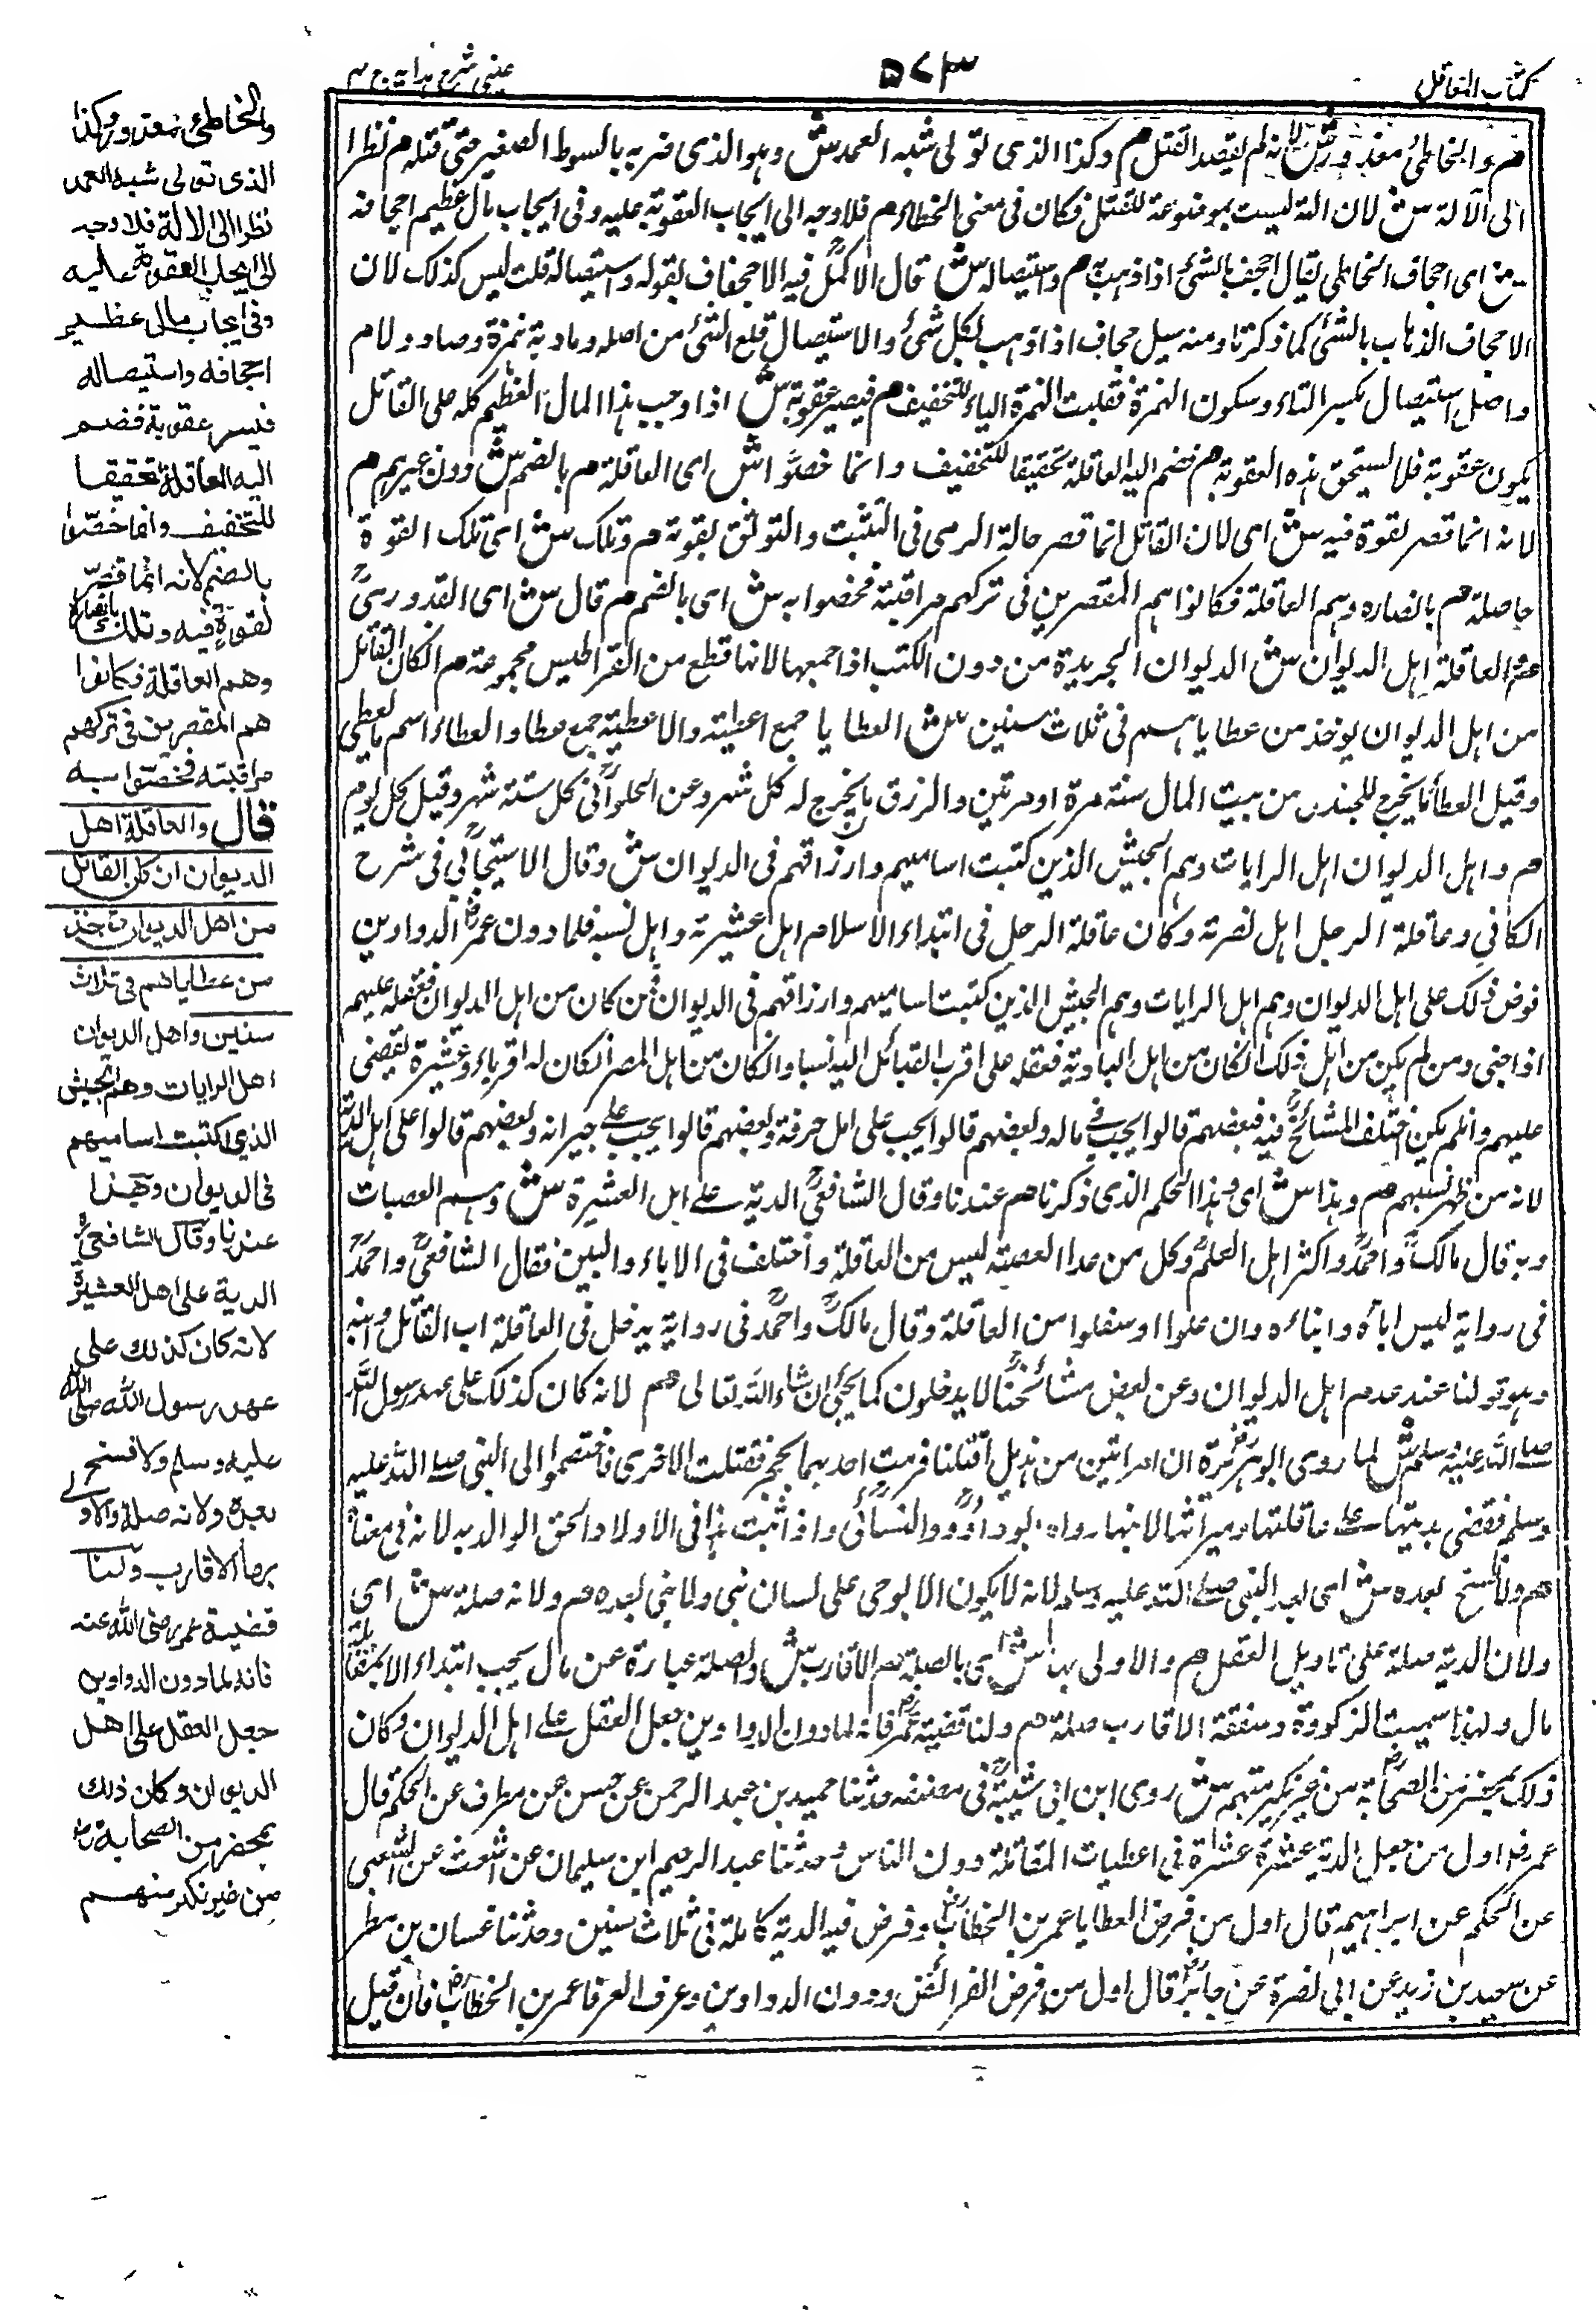 كتاب المعاقل
٥٧٣
عينى شرح هدايه ج ٣
م والخاطئ معذور ش لانه لم يقصد القتل م وكذا الذى تولى شبه العمد ش وهو الذى ضربه بالسوط الصغير حتى قتله م نظرا
الى الآلة ش لان الته ليست بموضوعة للقتل فكان فى معنى الخطاء م فلا وجه الى ايجاب العقوبة عليه وفى ايجاب مال عظيم اجحافه
ش اى اجحاف الخاطى يقال اجحف بالشئ اذا ذهب به م واستيصاله ش قال الاكمل فيه الاجحاف بقوله واستيصاله قلت ليس كذلك لان
الاجحاف الذهاب بالشئ كما ذكرنا ومنه سيل جحاف اذا ذهب بكل شئ والاستيصال قلع الشئ من اصله ومادته همزة وصاد ولام
واصل استيصال بكسر التاء وسكون الهمزة فقلبت الهمزة الياء للتخفيف م فيصير عقوبة ش اذا وجب هذا المال العظيم كله على القاتل
يكون عقوبة فلا يستحق هذه العقوبة م فضم اليه العاقلة تحقيقا للتخفيف وانما خصوا ش اى العاقلة م بالضم ش دون غيرهم م
لانه انما قصر لقوة فيه ش اى لان القاتل انما قصر حالة الرمى فى التثبت والتوثق بقوته م وتلك ش اى تلك القوة
حاصلة م بانصاره وهم العاقلة فكانوا هم المقصرين فى تركهم مراقبته فخصوا به ش اى بالضم م قال ش اى القدورى
م والعاقلة اهل الديوان ش الديوان الجريدة من دون الكتب اذا جمعها لانها قطع من القراطيس مجموعة م ان كان القاتل
من اهل الديوان يوخذ من عطاياهم فى ثلاث سنين ش العطايا جمع اعطية والاعطية جمع عطا والعطاء اسم ما يعطى
وقيل العطأ ما يخرج للجندى من بيت المال سنة مرة او مرتين والرزق ما يخرج له كل شهر وعن الحلوانى كل ستة شهر وقيل كل يوم
م واهل الديوان اهل الرايات وهم الجيش الذين كتبت اساميهم وارزاقهم فى الديوان ش وقال الاسبيجابى فى شرح
الكافى وعاقلة الرجل اهل نصرته وكان عاقلة الرجل فى ابتداء الاسلام اهل عشيرته واهل نسبه فلما دون عمر الدواوين
فوض ذلك على اهل الديوان وهم اهل الرايات وهم الجيش الذين كتبت اساميهم وارزاقهم فى الديوان فمن كان من اهل الديوان فعقله عليهم
اذا جنى ومن لم يكن من اهل ذلك ان كان من اهل البادية فعقله على اقرب القبائل اليه نسبا وان كان من اهل المصر ان كان له اقرباء وعشيرة يقضى
عليهم وان لم يكن اختلف المشائخ فيه فبعضهم قالوا يجب فى ماله وبعضهم قالوا يجب على اهل حرفة وبعضهم قالوا يجب على جيرانه وبعضهم قالوا على اهل
لانه من ظهر نسبهم م وهذا ش اى وهذا الحكم الذى ذكرنا م عندنا وقال الشافعى الدية على اهل العشيرة ش وهم العصبات
وبه قال مالك واحمد واكثر اهل العلم وكل من عدا العصبة ليس من العاقلة واختلف فى الاباء والبنين فقال الشافعى واحمد
فى رواية ليس اباؤه وابناءه وان علوا او سفلوا من العاقلة وقال مالك واحمد فى رواية يدخل فى العاقلة اب القاتل وابنه
وهو قولنا عند عدم اهل الديوان وعن بعض مشائخنا لا يدخلون كما يجئ ان شاء الله تعالى م لانه كان كذلك على عهد رسول الله
صلى الله عليه وسلم ش لما روى ابو هريرة ان امراتين من هذيل اقتتلتا فرمت احدهما بحجر فقتلت الاخرى فاختصموا الى النبى صلى الله عليه
وسلم فقضى بديتها على عاقلتها وميراثها لابنها رواه ابو داؤد والنسائى واذا ثبت هذا فى الاولاد الحق الوالد به لانه فى معناه
م ولا نسخ بعده ش اى بعد النبى صلى الله عليه وسلم لانه لا يكون الا بوحى على لسان نبى ولا نبى بعده م ولانه صلة ش اى
ولان الدية صلة على تاويل العقل م والاولى بها ش اى بالصلة م الاقارب ش والصلة عبارة عن مال يجب ابتداء لا بمقابلة
مال ولهذا سميت الزكوة ونفقة الاقارب صلة م ولنا قضية عمر فانه لما دون الدواوين جعل العقل على اهل الديوان وكان
ذلك بمحضر من الصحابة من غير نكير منهم ش روى ابن ابى شيبة فى مصنفه حدثنا حميد بن عبد الرحمن عن حسن عن مطرف عن الحكم قال
عمر اول من جعل الدية عشرة عشرة فى اعطيات المقاتلة دون الناس وحدثنا عبد الرحيم ابن سليمان عن اشعث عن الشعبى
عن الحكم عن ابراهيم قال اول من فرض العطايا عمر بن الخطاب وفرض فيه الدية كاملة فى ثلاث سنين وحدثنا غسان بن مطر
عن سعيد بن زيد عن ابى نضرة عن جابر قال اول من فرض الفرائض ودون الدواوين وعرف العرفا عمر بن الخطاب فان قيل
والخاطئ معذور وكذا
الذى تولى شبه العمد
نظرا الى الآلة فلا وجه
الى ايجاب العقوبة عليه
وفى ايجاب مال عظيم
اجحافه واستيصاله
فيصير عقوبة فضم
اليه العاقلة تحقيقا
للتخفيف وانما خصّوا
بالضم لانه انما قصّر
لقوة فيه وتلك بانصاره
وهم العاقلة فكانوا
هم المقصرين فى تركهم
مراقبته فخصّوا به
قال والعاقلة اهل
الديوان ان كان القاتل
من اهل الديوان يوخذ
من عطاياهم فى ثلاث
سنين واهل الديوان
اهل الرايات وهم الجيش
الذين كتبت اساميهم
فى الديوان وهذا
عندنا وقال الشافعى
الدية على اهل العشيرة
لانه كان كذلك على
عهد رسول الله صلى الله
عليه وسلم ولا نسخ
بعده ولانه صلة والاولى
بها الاقارب ولنا
قضية عمر رضى الله عنه
فانه لما دون الدواوين
جعل العقل على اهل
الديوان وكان ذلك
بمحضر من الصحابة
من غير نكير منهم